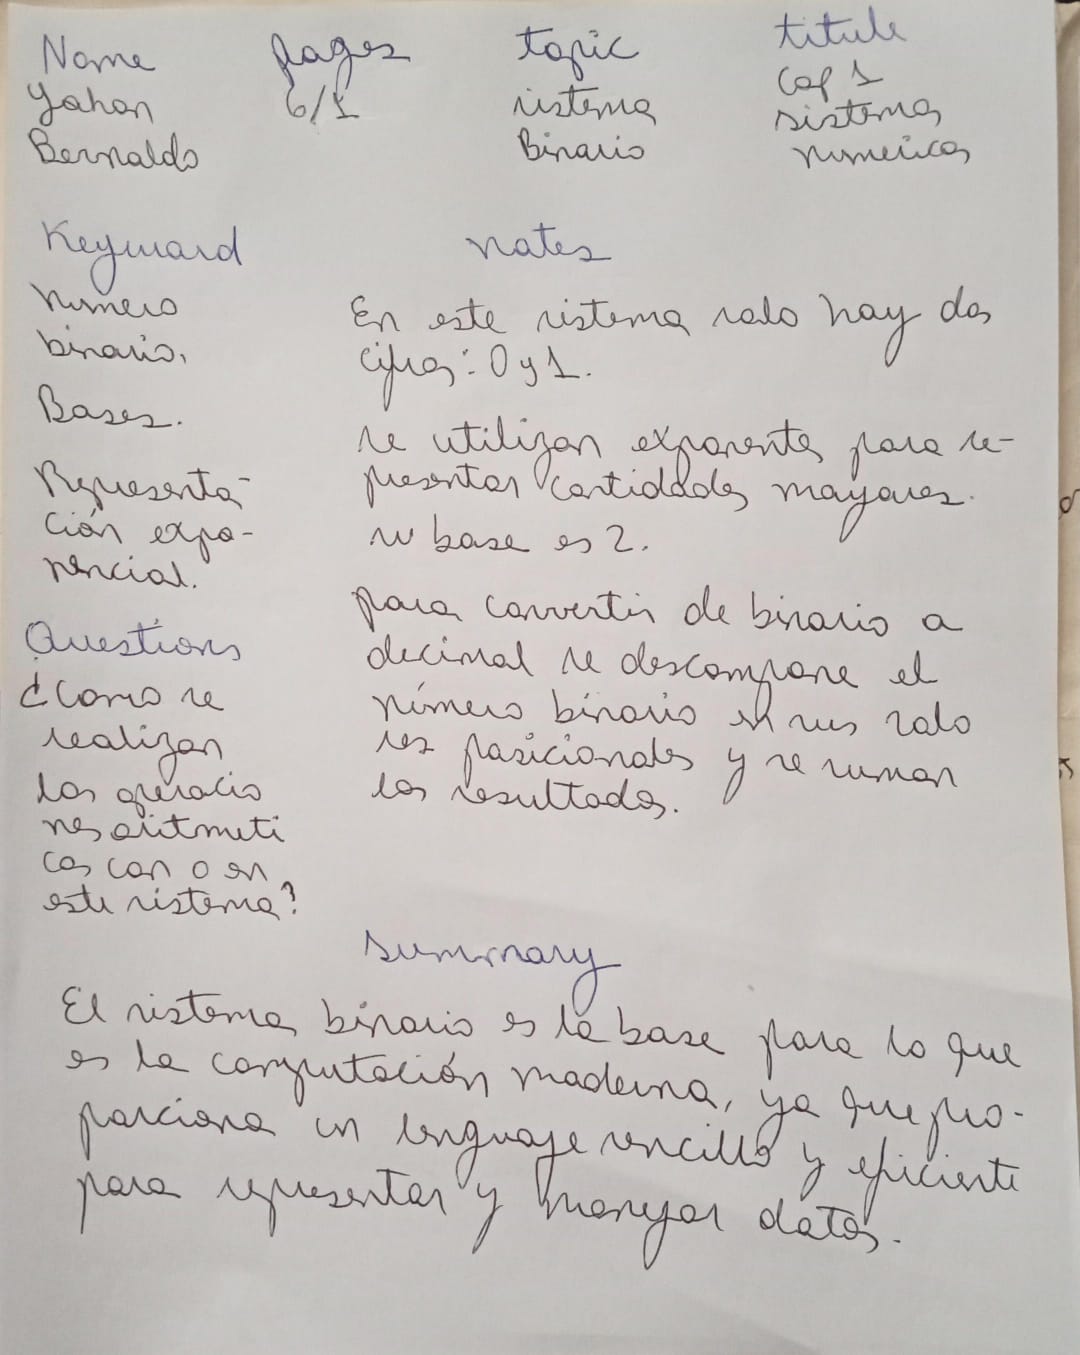 Name pages topic titule
Yahan 6/1 sistema Cap 1
Bernaldo Binario sistemas
numericos
Keyword
numero
binario.
Bases.
Representa-
ción expo-
nencial.
Questions
¿Como se
realizan
las operacio
nes aritmeti
cas con 0 en
este sistema?
notes
En este sistema solo hay dos
cifras: 0 y 1.
se utilizan exponentes para re-
presentar cantidades mayores.
su base es 2.
para convertir de binario a
decimal se descompone el
número binario en sus valo
res posicionales y se suman
los resultados.
Summary
El sistema binario es la base para lo que
es la computación moderna, ya que pro-
porciona un lenguaje sencillo y eficiente
para representar y manejar datos.